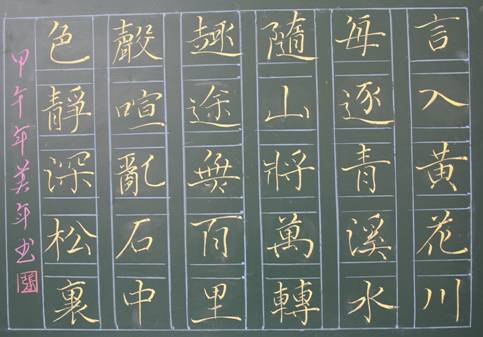 言入黄花川
每逐青溪水
隨山將萬轉
趣途無百里
聲喧亂石中
色靜深松裏
甲午年英年书